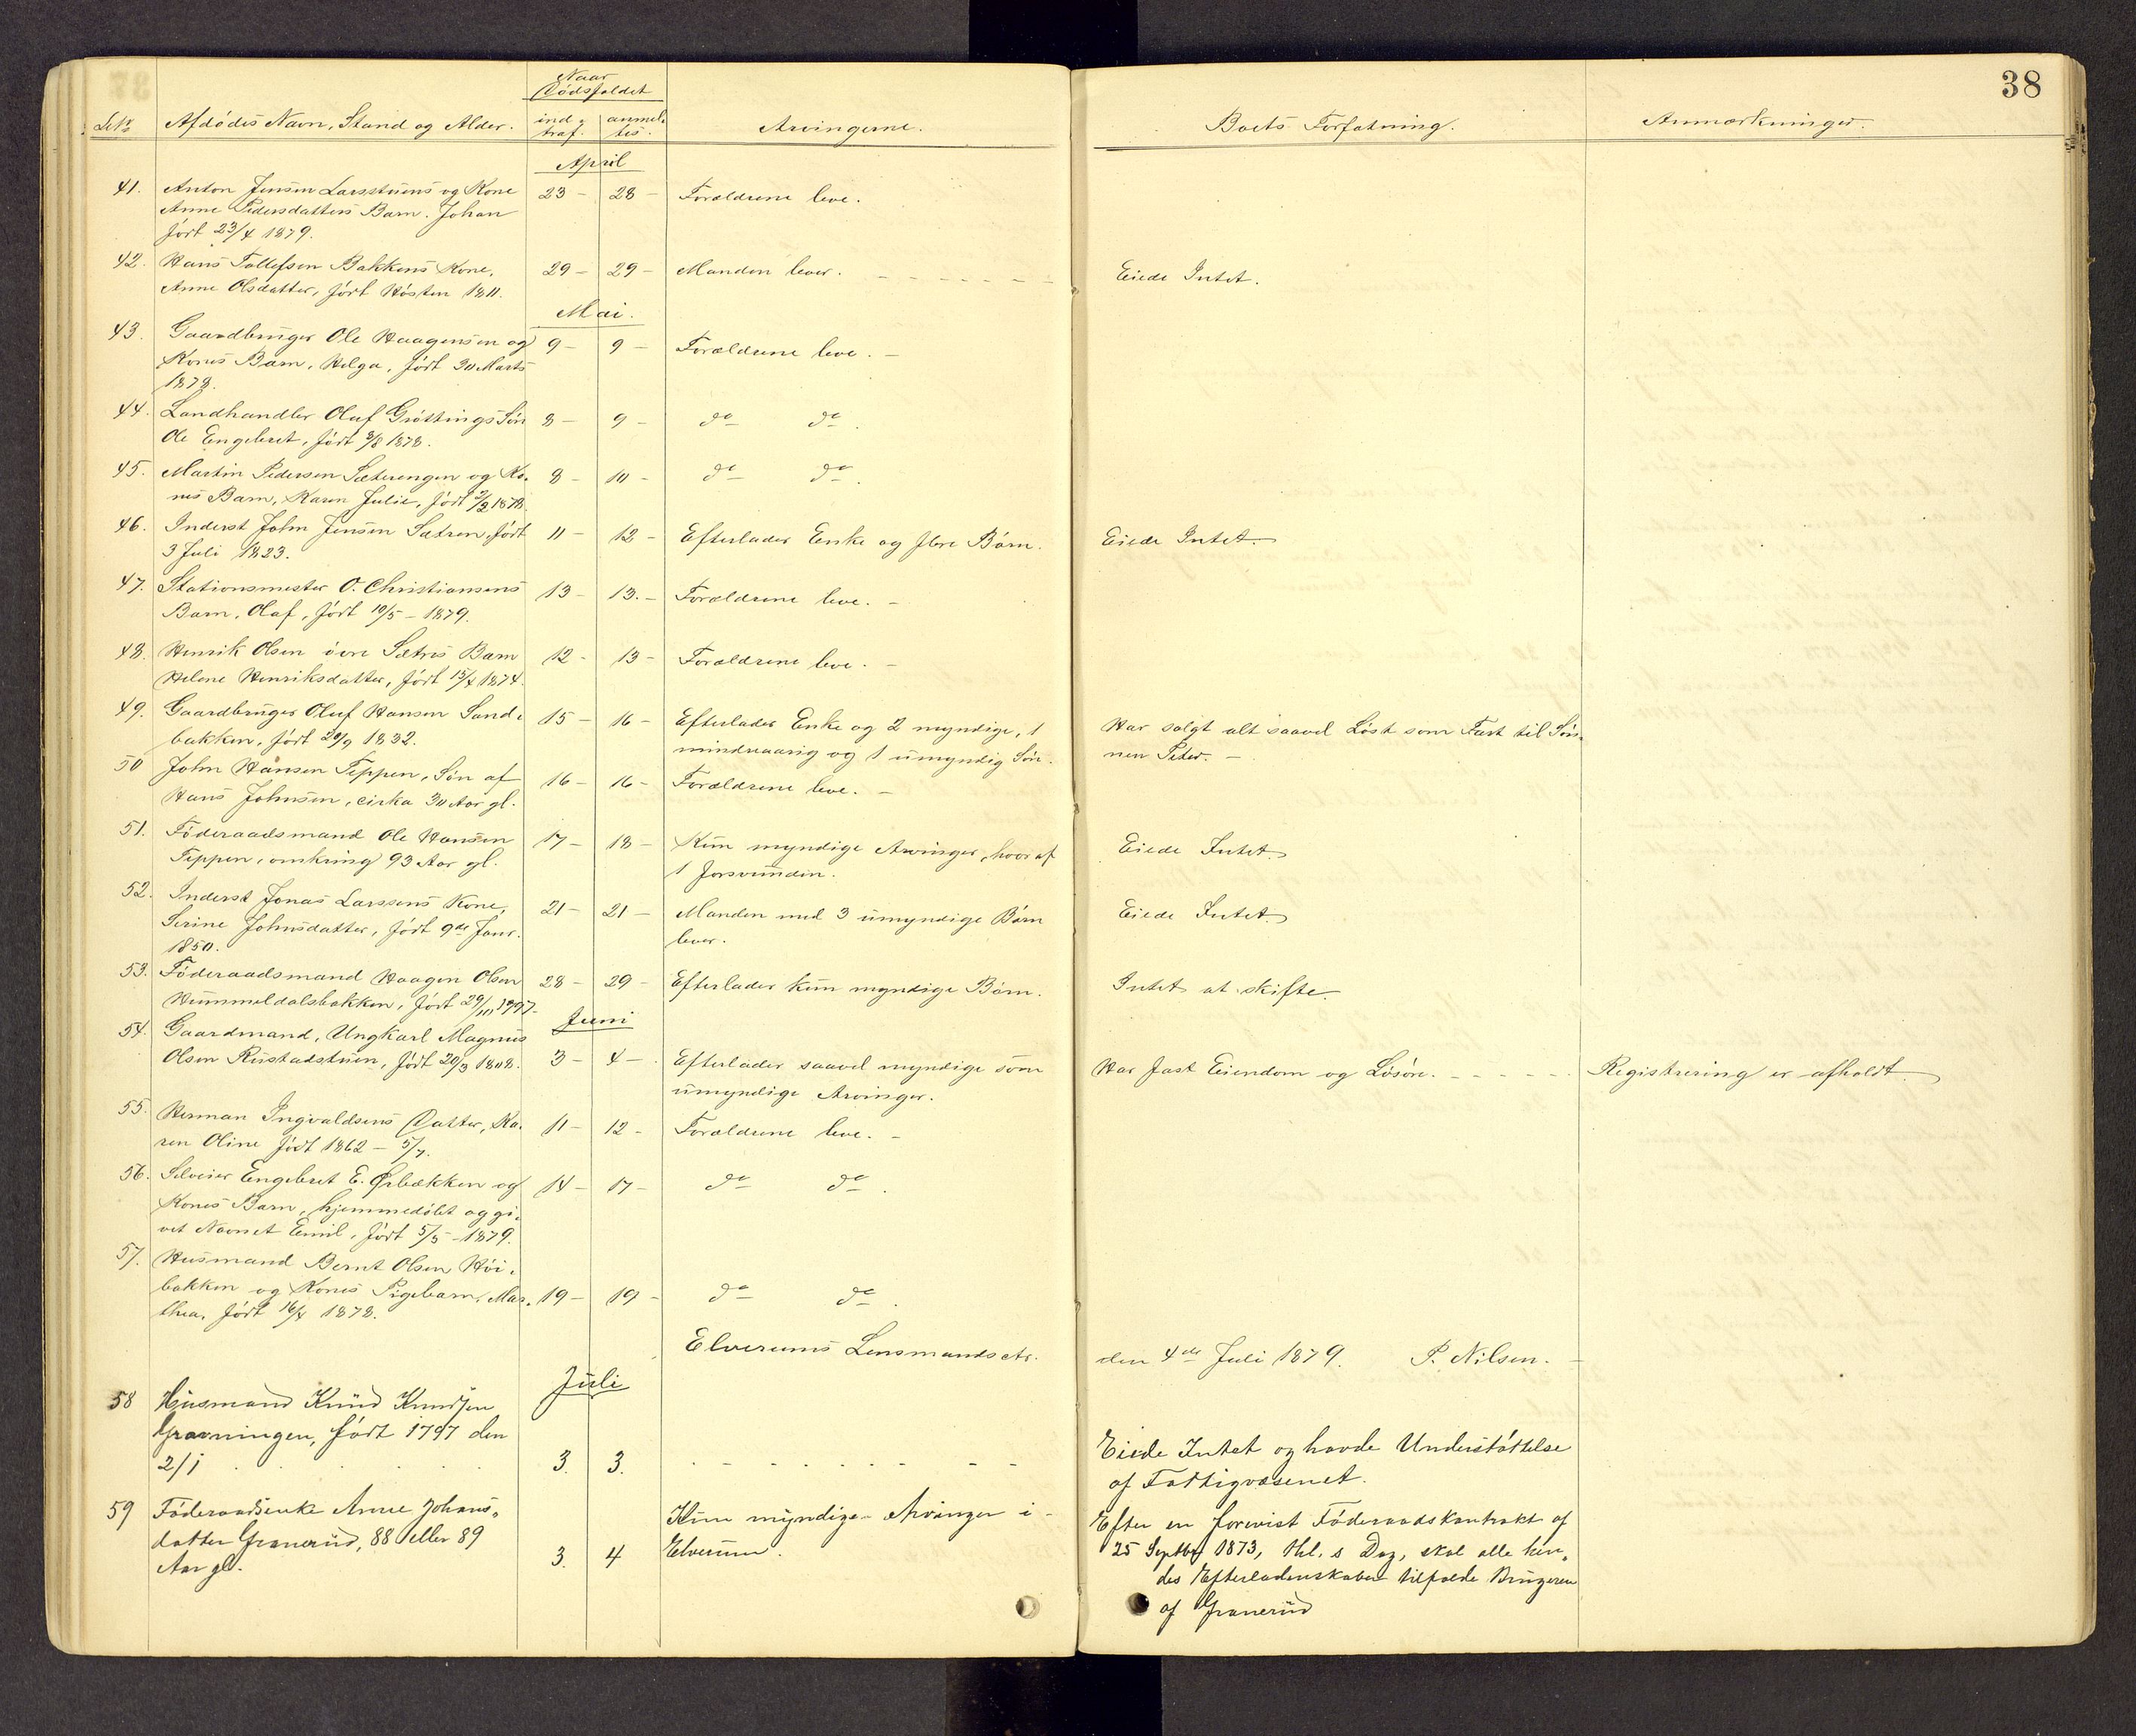 38
Naar
Dødsfaldet
LNr
Afdødes Navn, Stand og Alder.
ind-
traf.
anmel-
tes.
Arvingerne.
Boets Forfatning.
Anmærkninger.
April
41. Anton Jensen Larsstuens og Kone
Anne Pedersdatters Barn. Johan
født 23/4 1879.
23 - 28 - Forældrene leve.
42. Hans Tollefsen Bakkens Kone,
Anne Olsdatter, født Høsten 1811.
29 - 29 - Manden lever. Eiede Intet.
Mai.
43. Gaardbruger Ole Haagensen og
Kones Barn, Helga, født 30 Marts
1878.
9 - 9 - Forældrene leve. -
44. Landhandler Oluf Grøttings Søn
Ole Engebret, født 3/8 1878.
8 - 9 - do do.
45. Martin Pedersen Sæterengen og Ko-
nes Barn, Karen Julie, født 2/2 1878
8 - 10 - do do.
46. Inderst John Jensen Sætren, født
3 Juli 1823.
11 - 12 - Efterlader Enke og flere Børn. Eiede Intet.
47. Stationsmester O. Christiansens
Barn, Olaf, født 10/5 - 1879.
13 - 13. - Forældrene leve. -
48. Henrik Olsen øvre Sætres Barn
Helene Henriksdatter, født 15/4 1874.
12 - 13 - Forældrene leve. -
49. Gaardbruger Oluf Hansen Sand-
bakken, født 20/9 1832.
15 - 16 - Efterlader Enke og 2 myndige, 1
mindreaarig og 1 umyndig Søn.
Har solgt alt saavel Løst som Fast til Søn-
nen Peter. -
50 John Hansen Teppen, Søn af
Hans Johnsen, cirka 30 Aar gl.
16 - 16 - Forældrene leve. -
51. Føderaadsmand Ole Hansen
Teppen, omkring 93 Aar gl.
17 - 18 - Kun myndige Arvinger, hvoraf
1 forsvunden.
Eiede Intet.
52. Inderst Jonas Larssens Kone,
Serine Johnsdatter, født 9de Janr.
1850.
21 - 21 - Manden med 3 umyndige Børn
lever.
Eiede Intet.
53. Føderaadsmand Haagen Olsen
Hummeldalsbakken, født 29/10 1797.
28 - 29 - Efterlader kun myndige Børn. Intet at skifte.
Juni
54. Gaardmand, Ungkarl Magnus
Olsen Rustadstuen, født 20/3 1808.
3 - 4 - Efterlader saavel myndige som
umyndige Arvinger.
Har fast Eiendom og Løsøre. Registrering er afholdt.
55. Herman Ingvaldsens Datter, Ka-
ren Oline født 1862 - 5/7.
11 - 12 - Forældrene leve. -
56. Selveier Engebret E. Ørbækken og
Kones Barn, hjemmedøbt og gi-
vet Navnet Emil, født 5/5 - 1879.
14 - 17 - do do.
57. Husmand Bernt Olsen Høi-
bakken og Kones Pigebarn, Mar-
thea, født 16/4 1878.
19 - 19 - do do.
Elverums Lensmandsctr. den 4de Juli 1879. P. Nilsen. -
Juli
58 Husmand Knud Knudsen
Gravningen, født 1797 den
2/1
3. 3.
Eiede Intet og havde Understøttelse
af Fattigvæsenet.
59 Føderaadsenke Anne Johans-
datter Granerud, 88 eller 89
Aar gl.
3. 4 Kun myndige Arvinger i
Elverum.
Efter en forevist Føderaadskontrakt af
25 Septbr 1873, thl. s Dag, skal alle hen-
des Efterladenskaber tilfalde Brugeren
af Granerud